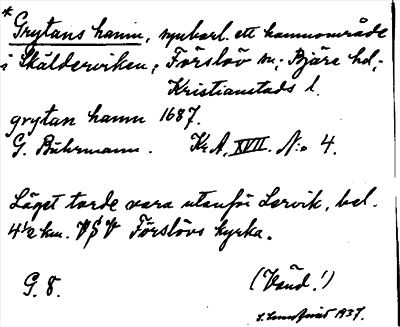 * Grytans hamn, synbarl. ett hamnområde
i Skälderviken, Förslöv sn, Bjäre hd,
Kristianstads l.
grytan hamn 1687.
G. Buhrmann. KrA. XVII. N:o 4.
Läget torde vara utanför Lervik, bel.
4 1/2 km. VSV Förslövs kyrka.
G. 8. (Vänd!)
1937.